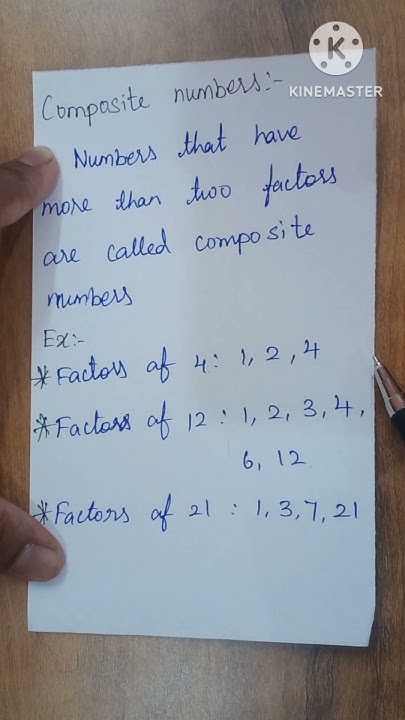 K
KINEMASTER
Composite numbers:-
Numbers that have
more than two factors
are called composite
numbers
Ex:-
*Factors of 4: 1, 2, 4
*Factors of 12 : 1, 2, 3, 4,
6, 12
*Factors of 21 : 1, 3, 7, 21